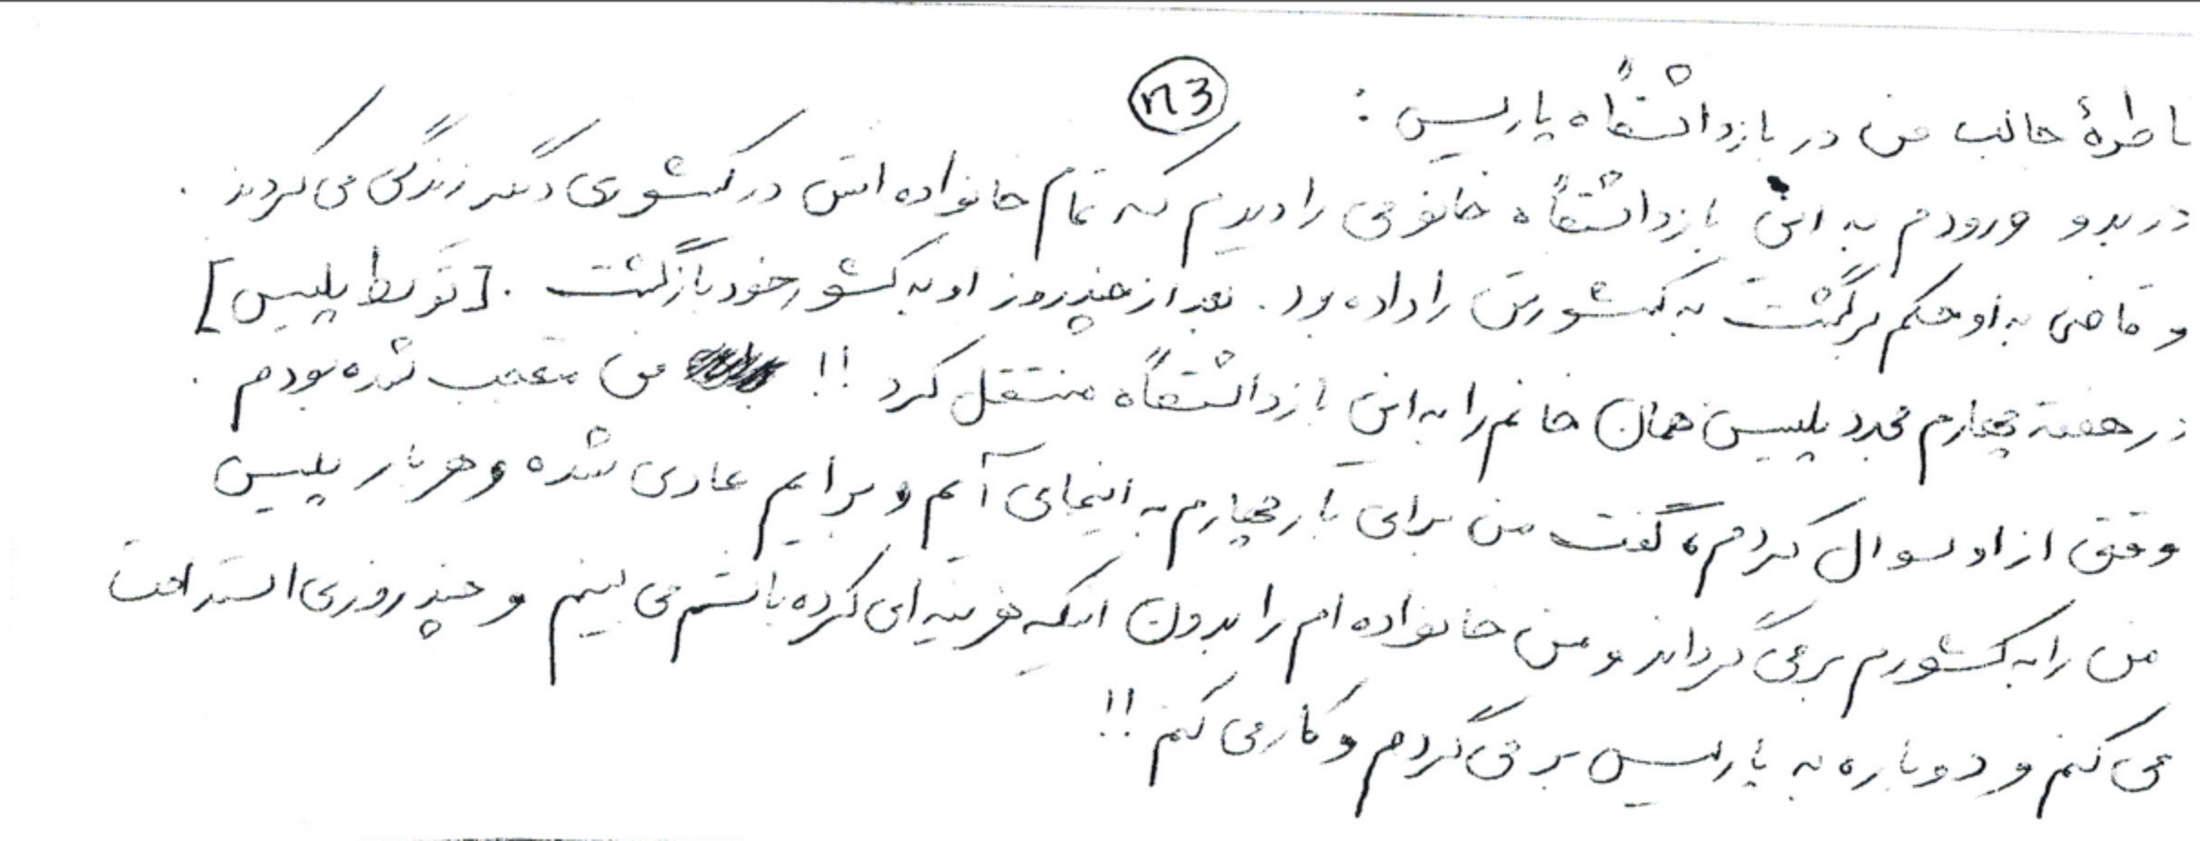 اطرهٔ جالب من در بازداشتگاه پاریس : n3
در بدو ورودم به این بازداشتگاه خانومی را دیدم که تمام خانواده اش در کشوری دیگر زندگی می کردند .
و قاضی به او حکم برگشت به کشورش را داده بود . بعد از چند روز او به کشور خود بازگشت . [توسط پلیس]
در هفته چهارم مجدد پلیس همان خانم را به این بازداشتگاه منتقل کرد !! من متعجب شده بودم .
وقتی از او سوال کردم، گفت من برای بار چهارم به اینجا می آیم و برایم عادی شده و هر بار پلیس
من را به کشورم بر می گرداند و من خانواده ام را بدون اینکه هزینه ای کرده باشم می بینم و چند روزی استراحت
می کنم و دوباره به پاریس بر می گردم و کار می کنم !!